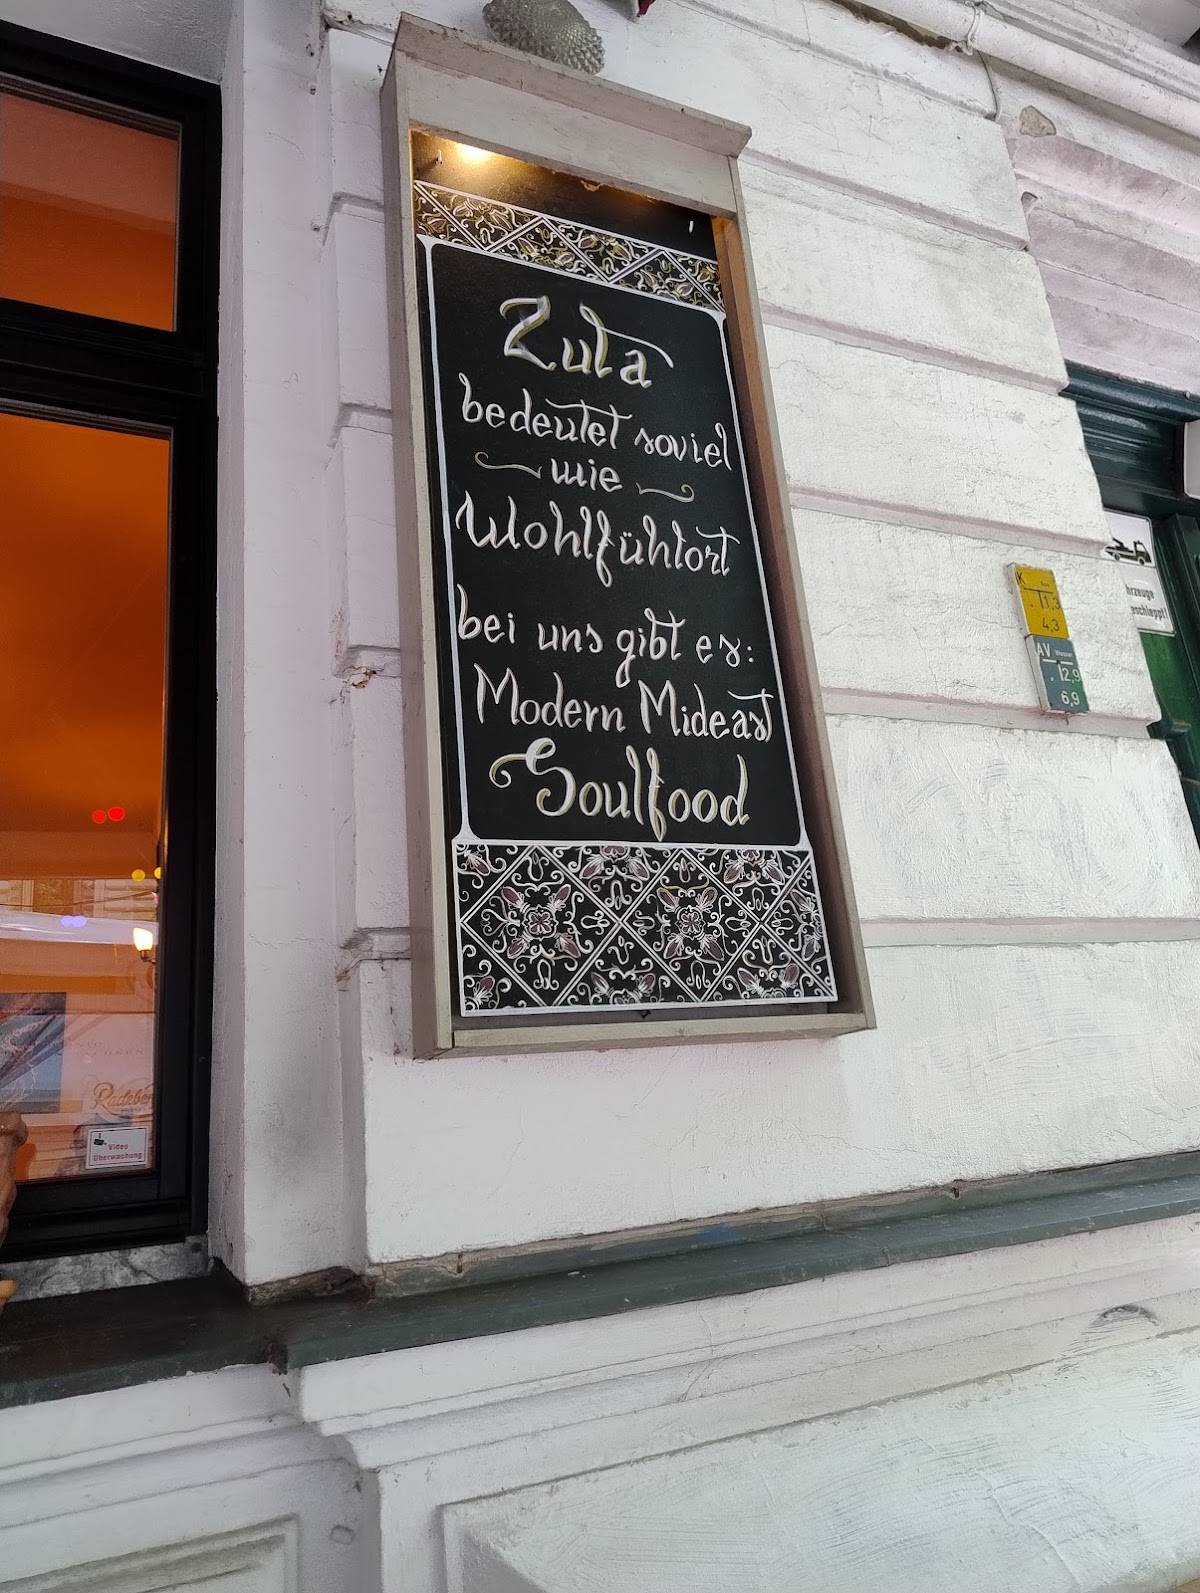 Zula
bedeutet soviel
wie
Wohlfühlort
bei uns gibt es:
Modern Mideast
Soulfood
K
11,3
4,3
AV
12,9
6,9
Video
Überwachung